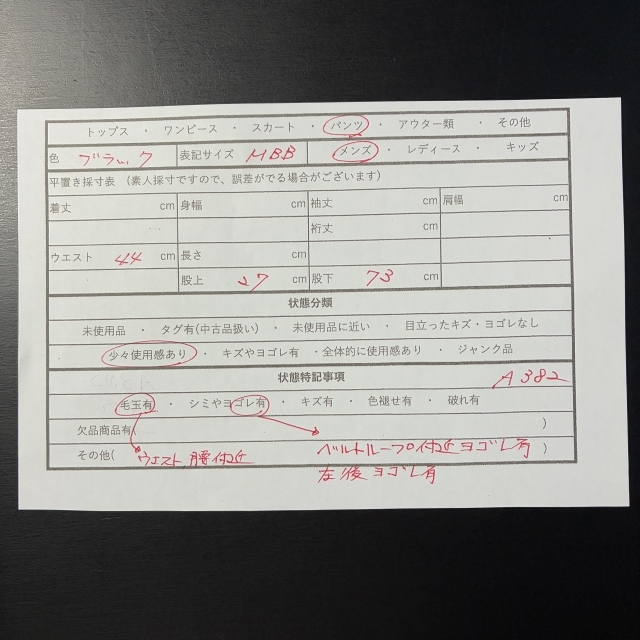 トップス ・ ワンピース ・ スカート ・ パンツ ・ アウター類 ・ その他
色 ブラック 表記サイズ MBB メンズ ・ レディース ・ キッズ
平置き採寸表 (素人採寸ですので、誤差がでる場合がございます)
着丈 cm 身幅 cm 袖丈 cm 肩幅 cm
裄丈 cm
ウエスト 44 cm 長さ cm
股上 27 cm 股下 73 cm
状態分類
未使用品 ・ タグ有(中古品扱い) ・ 未使用品に近い ・ 目立ったキズ・ヨゴレなし
少々使用感あり ・ キズやヨゴレ有 ・全体的に使用感あり ・ ジャンク品
状態特記事項 A382
毛玉有 ・ シミやヨゴレ有 ・ キズ有 ・ 色褪せ有 ・ 破れ有
欠品商品有 )
その他( ウエスト 腰付近 ベルトループ付近ヨゴレ有 )
左後ヨゴレ有